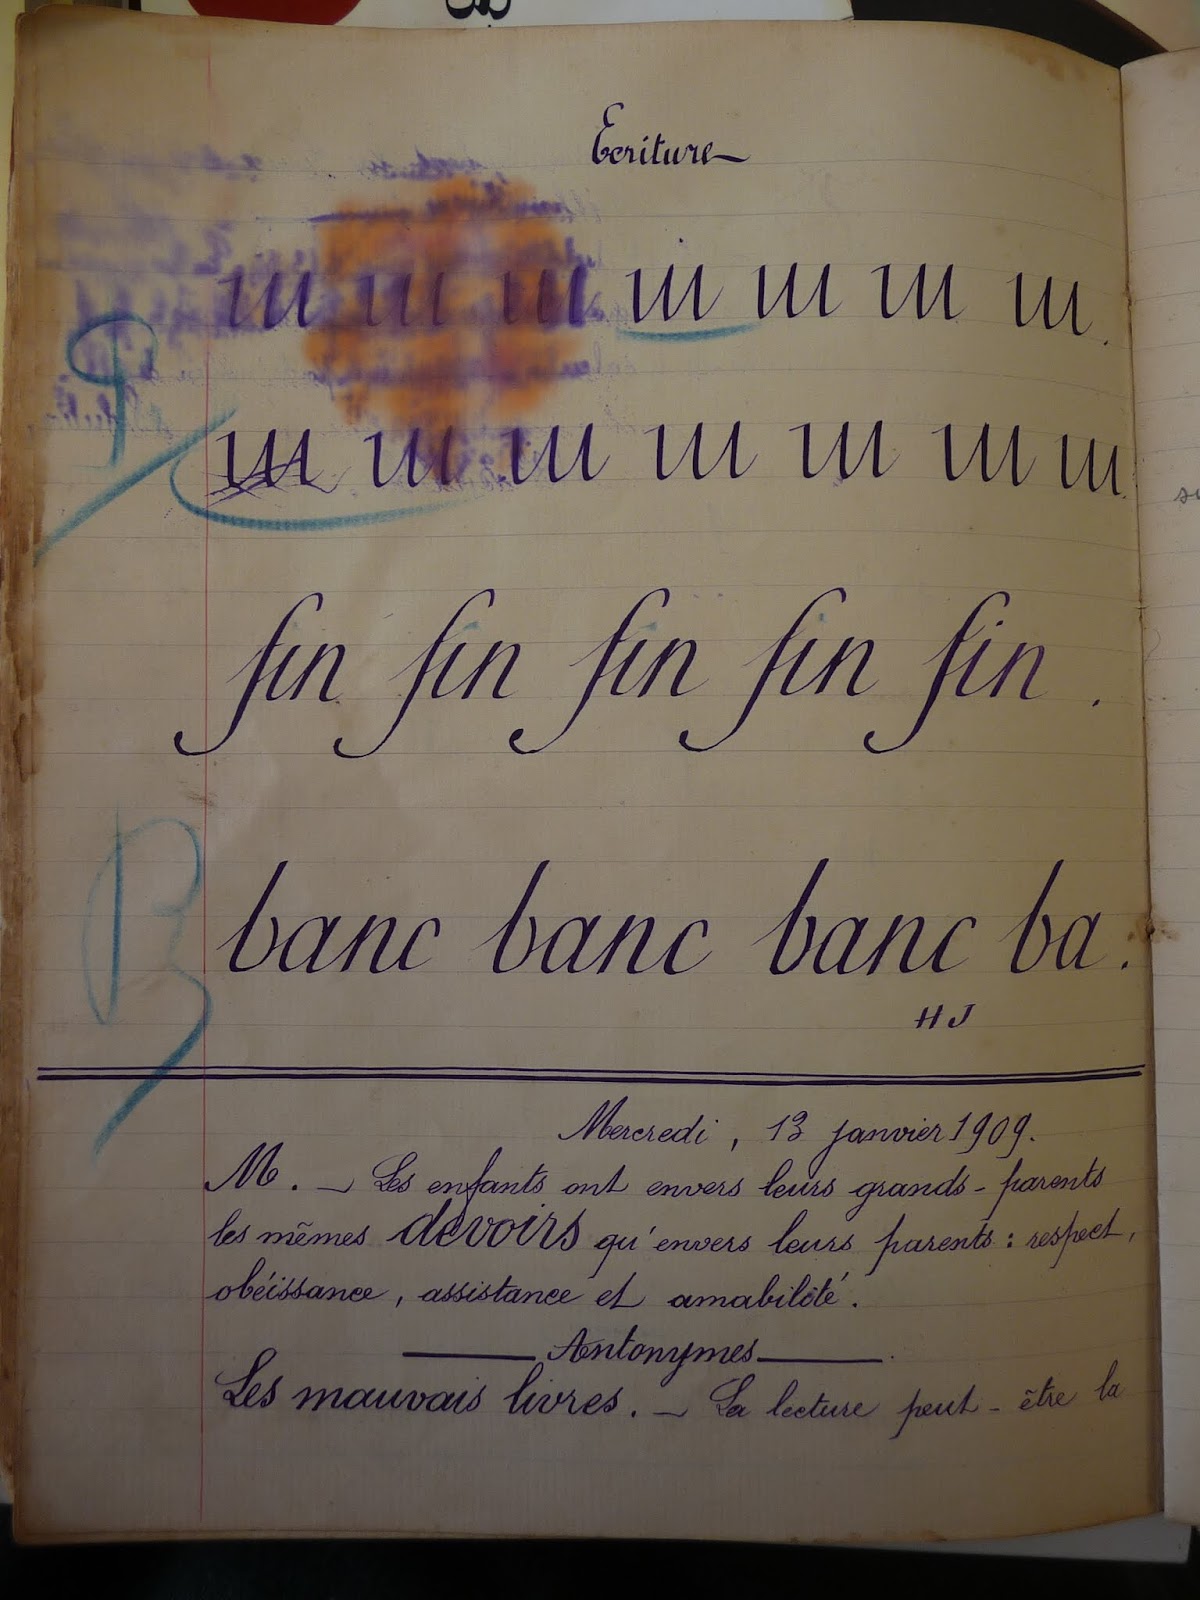 Ecriture
ııı ııı ııı iıı ııı ııı ııı.
ııı ııı ııı ııı ııı ııı ııı.
fin fin fin fin fin.
banc banc banc ba.
B
H J
Mercredi, 13 janvier 1909.
M. — Les enfants ont envers leurs grands-parents
les mêmes devoirs qu'envers leurs parents : respect,
obéissance, assistance et amabilité.
Antonymes
Les mauvais livres. — La lecture peut-être la